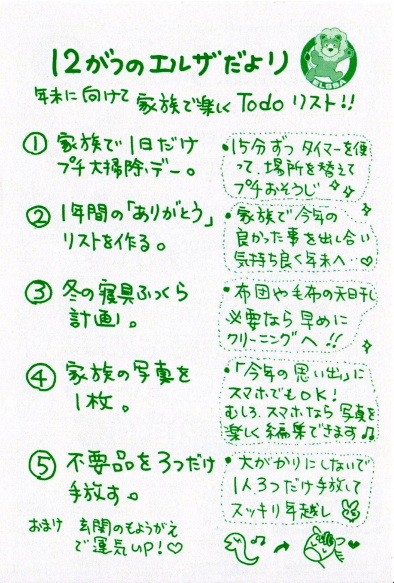 12がつのエルザだより
ELSA
年末に向けて 家族で楽しく Todo リスト!!
① 家族で1日だけ
プチ大掃除デー。
•15分ずつ タイマーを使
って、場所を替えて
プチおそうじ
② 1年間の「ありがとう」
リストを作る。
•家族で今年の…
良かった事を出し合い
気持ち良く年末へ…♡
③ 冬の寝具ふっくら
計画。
•布団や毛布の天日干し
必要なら早めに
クリーニングへ!!
④ 家族の写真を
1枚。
•「今年の思い出」に
スマホでもOK!
むしろ、スマホなら写真を
楽しく編集できます♫
⑤ 不要品を3つだけ
手放す。
•大がかりにしないで
1人3つだけ手放して
スッキリ年越し
おまけ 玄関のもようがえ
で運気UP!♡